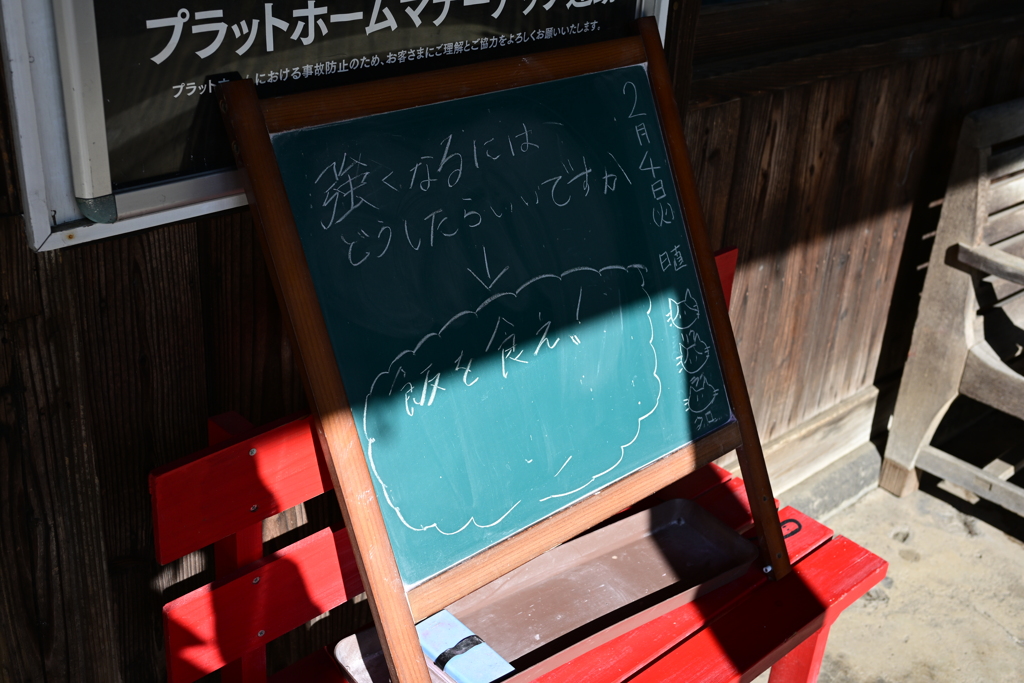 プラットホームマナーアップ運動
プラットホームにおける事故防止のため、お客さまにご理解とご協力をよろしくお願いいたします。
強くなるには
どうしたらいいですか
↓
飯を食え!
2月4日(火)
日直
クロ